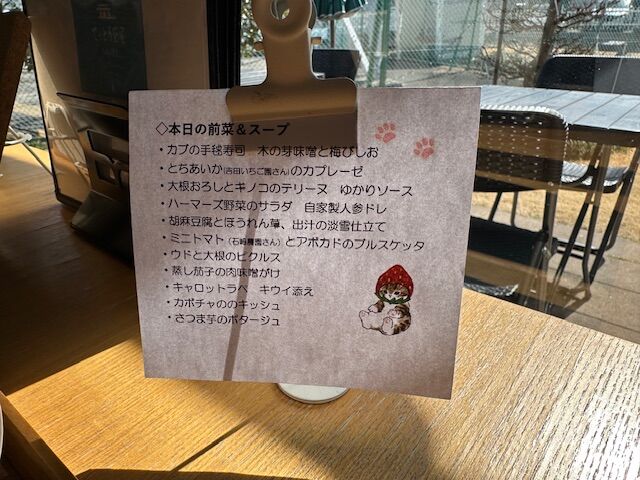 ◇本日の前菜＆スープ
・カブの手毬寿司　木の芽味噌と梅びしお
・とちあいか(吉田いちご園さん)のカプレーゼ
・大根おろしとキノコのテリーヌ　ゆかりソース
・ハーマーズ野菜のサラダ　自家製人参ドレ
・胡麻豆腐とほうれん草、出汁の淡雪仕立て
・ミニトマト(石﨑農園さん)とアボカドのブルスケッタ
・ウドと大根のピクルス
・蒸し茄子の肉味噌がけ
・キャロットラペ　キウイ添え
・カボチャののキッシュ
・さつま芋のポタージュ